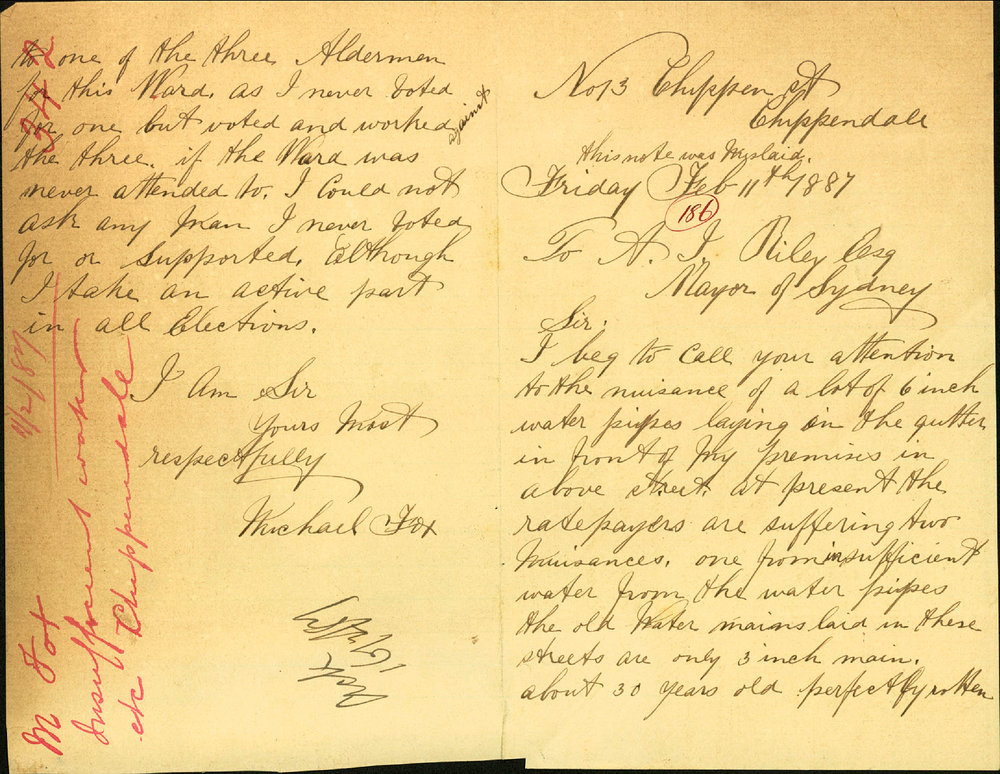 No 13 Chippen st
Chippendale
this note was Myslaid.
Friday Feb 11th 1887
186
To A. J. Riley Esq
Mayor of Sydney
Sir.
I beg to Call your attention
to the nuisance of a lot of 6 inch
water pipes laying in the gutter
in front of My premises in
above street. at present the
ratepayers are suffering two
nuisances, one from insufficient
water from the water pipes
the old Water mains laid in these
streets are only 3 inch main.
about 30 years old perfectly rotten
to one of the three Aldermen
for this Ward. as I never voted
for one but voted and worked against
the three. if the Ward was
never attended to. I Could not
ask any Man I never voted
for or supported. although
I take an active part
in all Elections.
I Am Sir
Yours Most
respectfully
Michael Fox
342
11/2/87
M Fox
Insufficient water
etc Chippendale